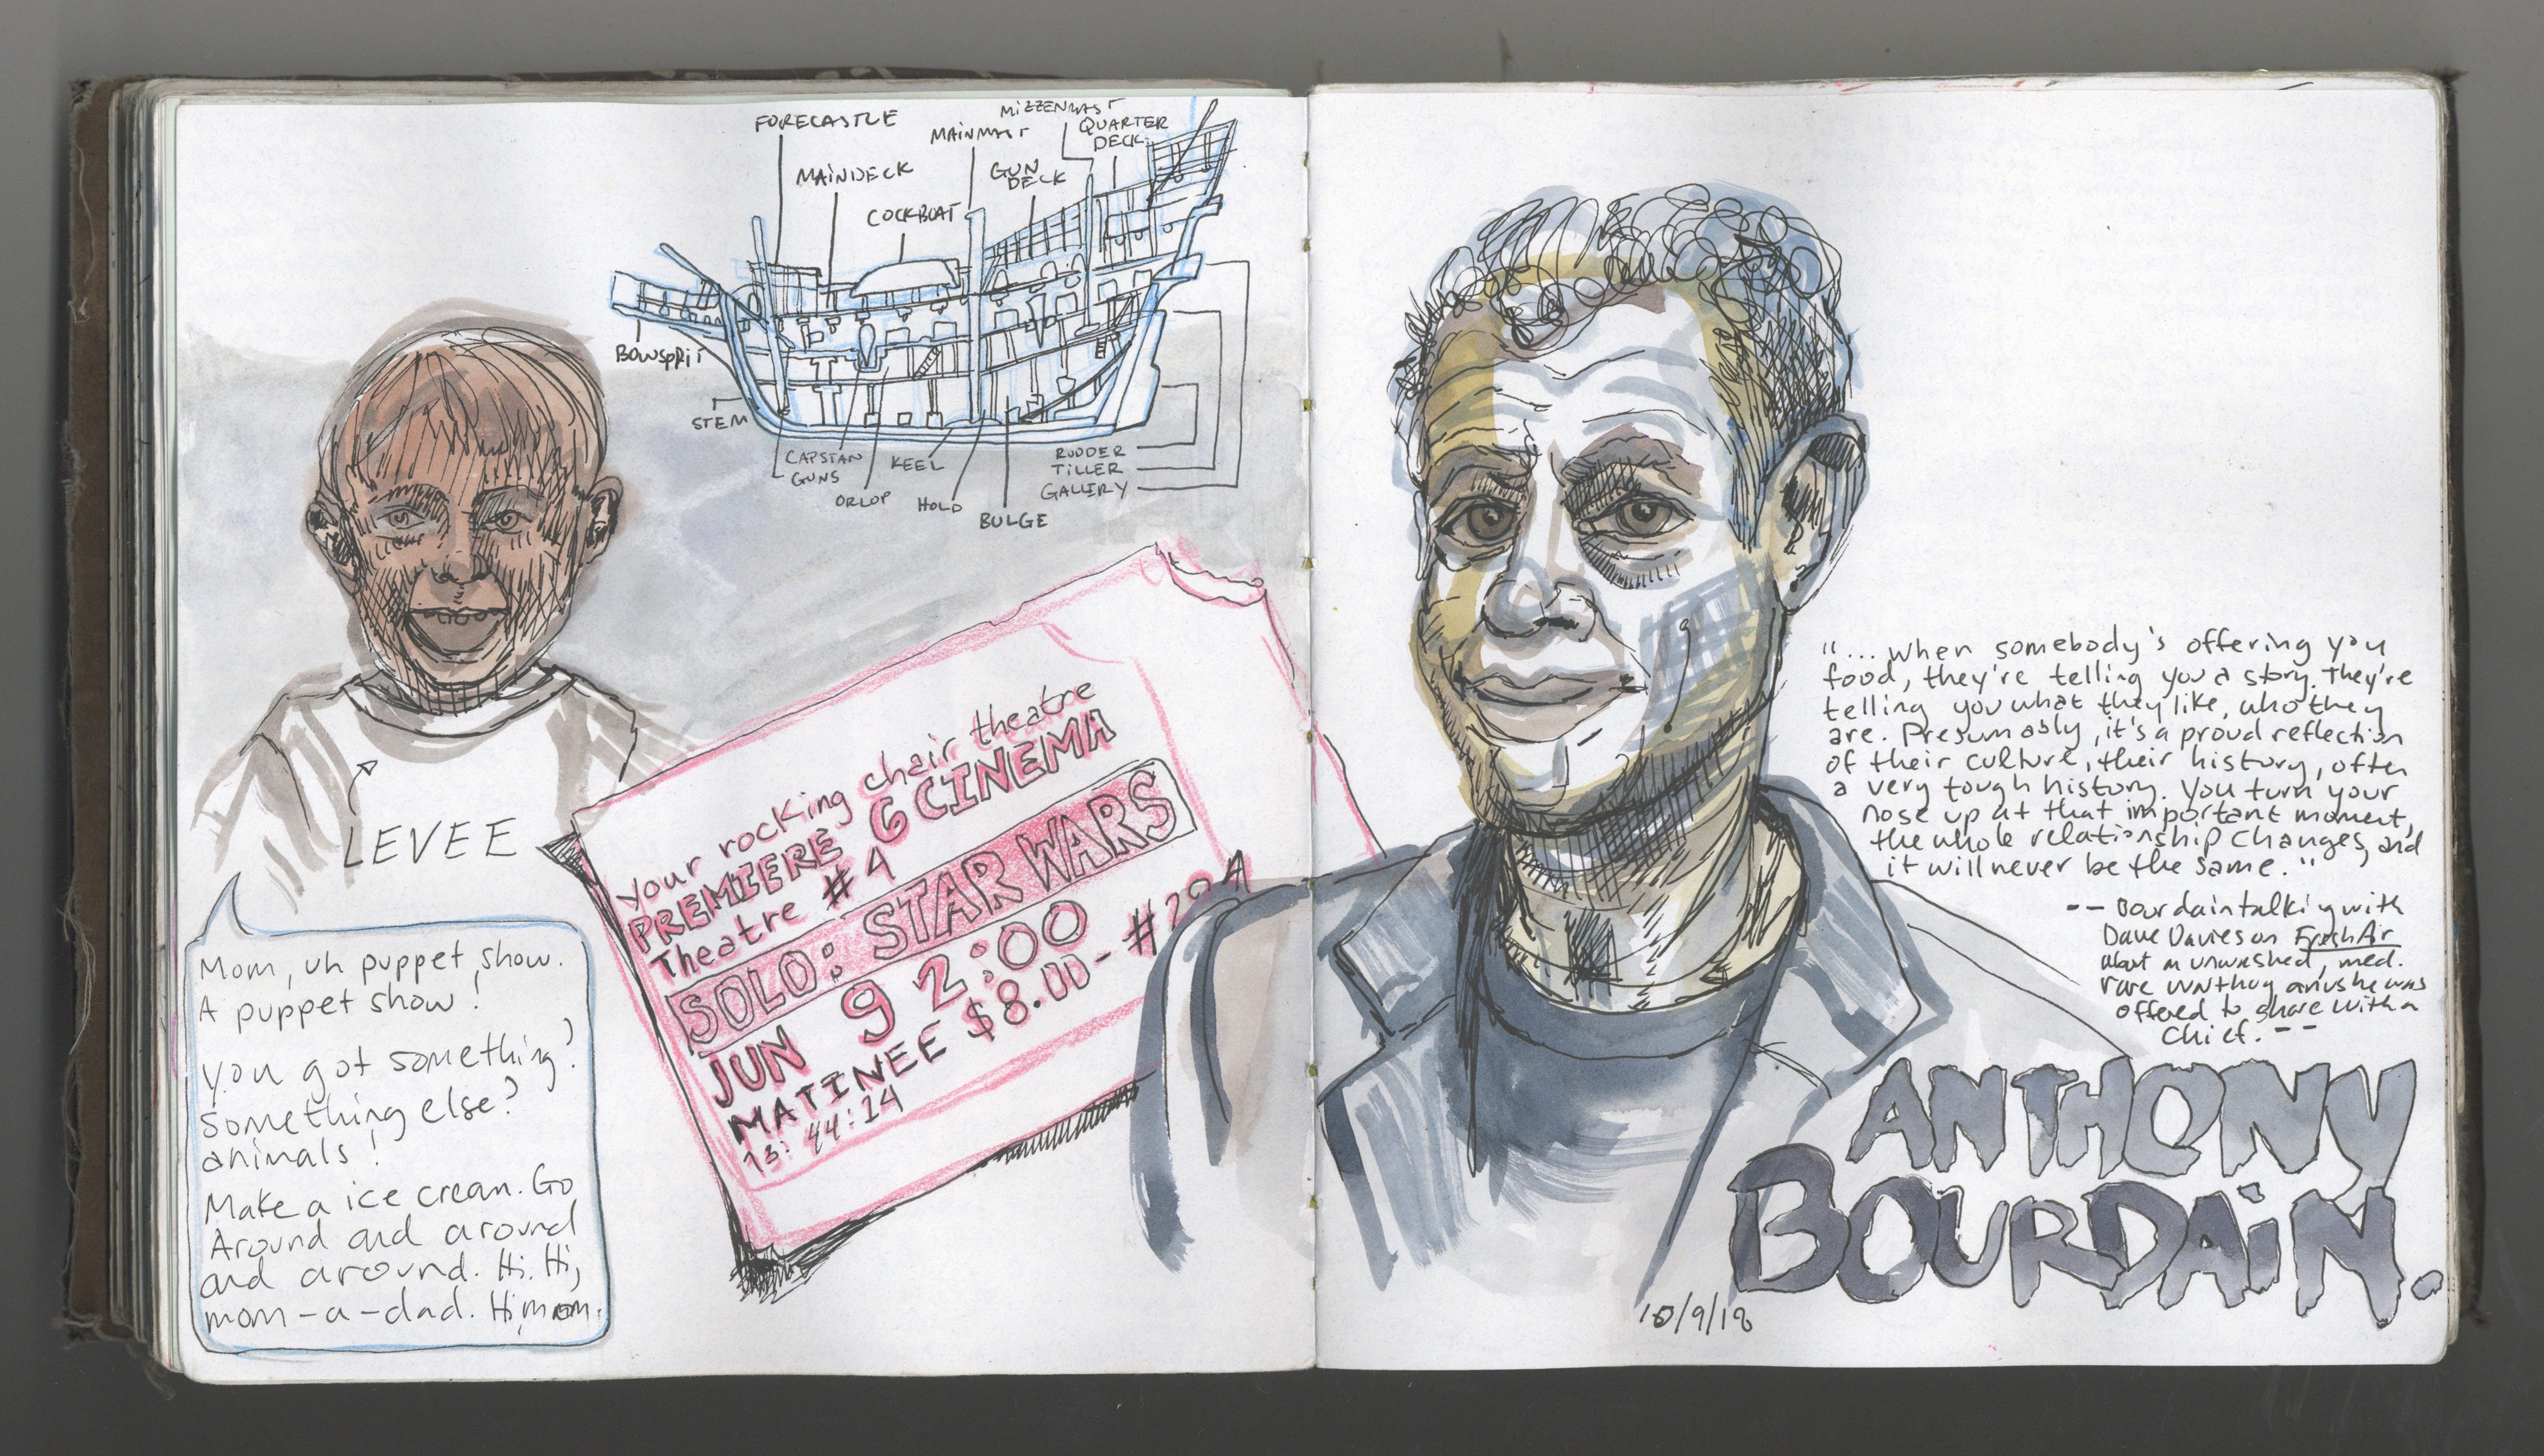 FORECASTLE
MAINDECK
COCKBOAT
MAINMAST
MIZZENMAST
GUN
DECK
QUARTER
DECK
BOWSPRIT
STEM
CAPSTAN
GUNS
ORLOP
KEEL
HOLD
BULGE
RUDDER
TILLER
GALLERY
LEVEE
Mom, uh puppet show.
A puppet show!
you got something?
something else?
animals!
Make a ice cream. Go
Around and around
and around. Hi. Hi,
mom-a-dad. Hi, mom.
your rocking chair theatre
PREMIERE 6 CINEMA
Theatre #4
SOLO: STAR WARS
JUN 9 2:00
MATINEE $8.00-
13:44:14
"...when somebody's offering you
food, they're telling you a story. They're
telling you what they like, who they
are. Presumably, it's a proud reflection
of their culture, their history, often
a very tough history. You turn your
nose up at that important moment,
the whole relationship changes, and
it will never be the same."
-- Bourdain talking with
Dave Davies on Fresh Air
about an unwashed, med.
rare warthog anus he was
offered to share with a
chief. --
ANTHONY
BOURDAIN.
10/9/18